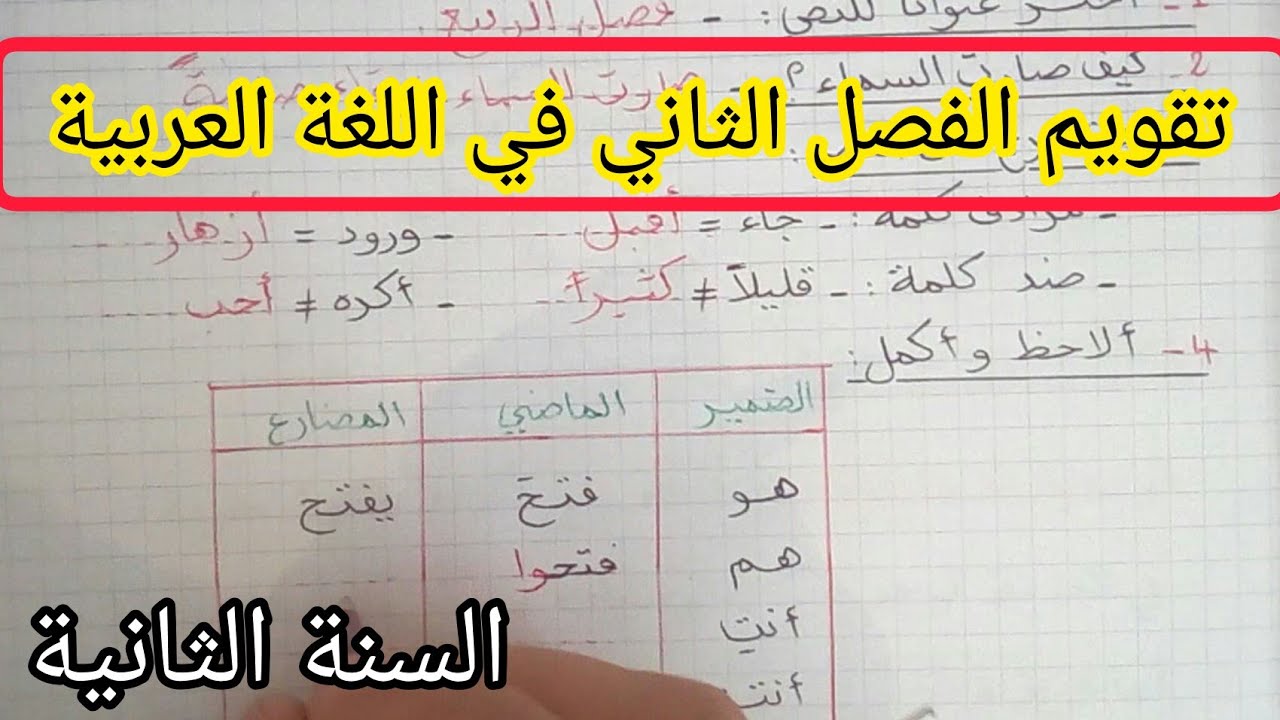 1- عنوانا للنص: - فصل الربيع.
2- كيف صارت السماء؟ - صارت السماء
تقويم الفصل الثاني في اللغة العربية
- مرادف كلمة: - جاء = أقبل - ورود = أزهار
- ضد كلمة: - قليلاً ≠ كثيراً - أكره ≠ أحب
4- ألاحظ وأكمل:
الضمير الماضي المضارع
هو فتحَ يفتح
هم فتحوا
أنتِ
أنت
السنة الثانية